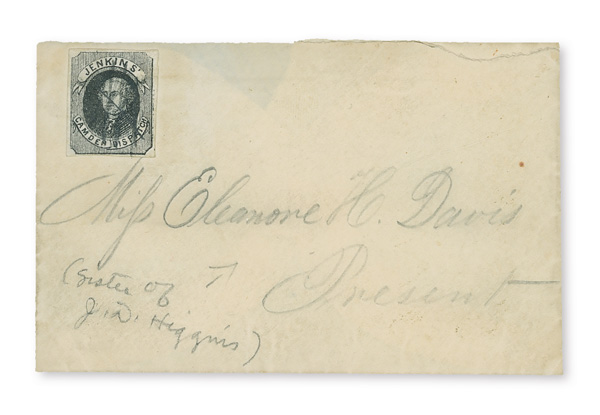 JENKINS'
CAMDEN DISPATCH
Miss Eleanore H. Davis
Present
(Sister of
J. D. Higgins)